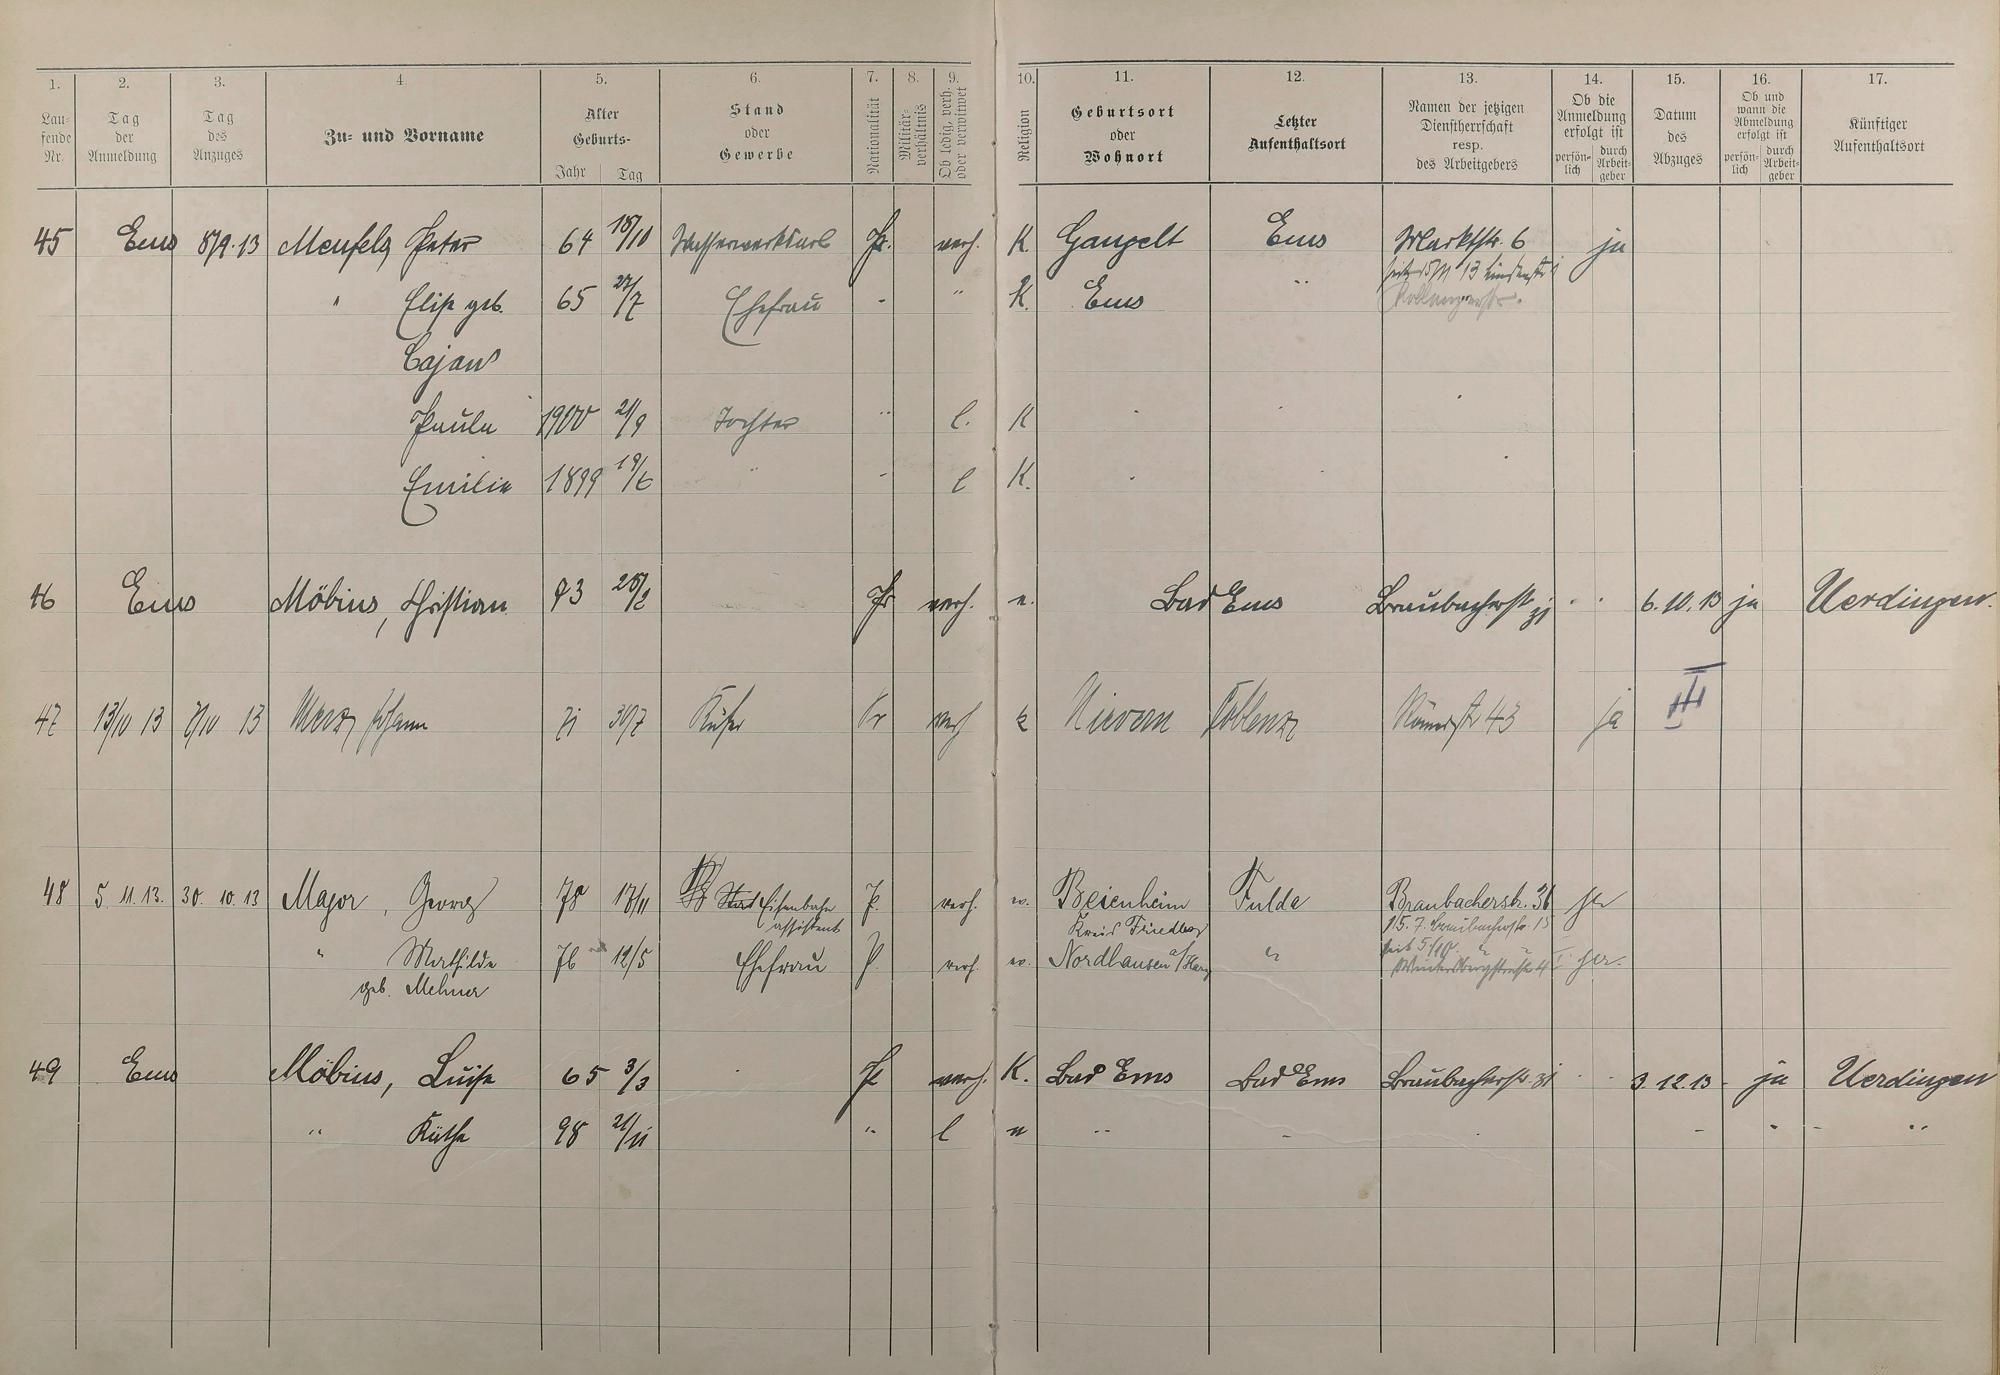 1. 2. 3. 4 5. 6. 7. 8. 9. 10. 11. 12. 13. 14. 15. 16. 17.
Lau-
fende
Nr.
Tag
der
Anmeldung
Tag
des
Anzuges
Zu- und Vorname
Alter
Geburts-
Jahr Tag
Stand
oder
Gewerbe
Nationalität
Militär-
verhältnis
Ob ledig, verh.
oder verwitwet
Religion
Geburtsort
oder
Wohnort
Letzter
Aufenthaltsort
Namen der jetzigen
Dienstherrschaft
resp.
des Arbeitgebers
Ob die
Anmeldung
erfolgt ist
persön-
lich
durch
Arbeit-
geber
Datum
des
Abzuges
Ob und
wann die
Abmeldung
erfolgt ist
persön-
lich
durch
Arbeit-
geber
Künftiger
Aufenthaltsort
45 Ems 8/9. 13 Peter 64 18/10 Pr. verh. K. Gangelt Ems Marktstr. 6 ja
" Elise geb. 65 27/7 Ehefrau - " K. Ems "
Cajan
Paula 1900 21/9 Tochter " l. K
Emilie 1899 19/6 " - l K.
46 Ems Möbius, Christian 93 Pr verh. Bad Ems Braubacherstr 31 6. 10. 13 ja Uerdingen.
47 13/10 13 7/10 13 Johann 71 30/7 Küfer Pr verh k Nievern Coblenz Römerstr 43 ja
48 5. 11. 13. 30. 10. 13 Major, Georg 78 Eisenbahn P. verh. ev. Beienheim Fulda Braubacherstr. 36 ja
assistent Kreis Friedberg 15. 7. Braubacherstr. 15
" Mathilde 76 12/5 Ehefrau P. verh. ev. Nordhausen a/Harz " seit 5/10 ja.
geb. Mehner
49 Ems Möbius, Luise 65 3/3 Pr verh. K. Bad Ems Bad Ems Braubacherstr. 31 3. 12. 13 - ja Uerdingen
" Käthe 98 21/11 " l " " - - " - "